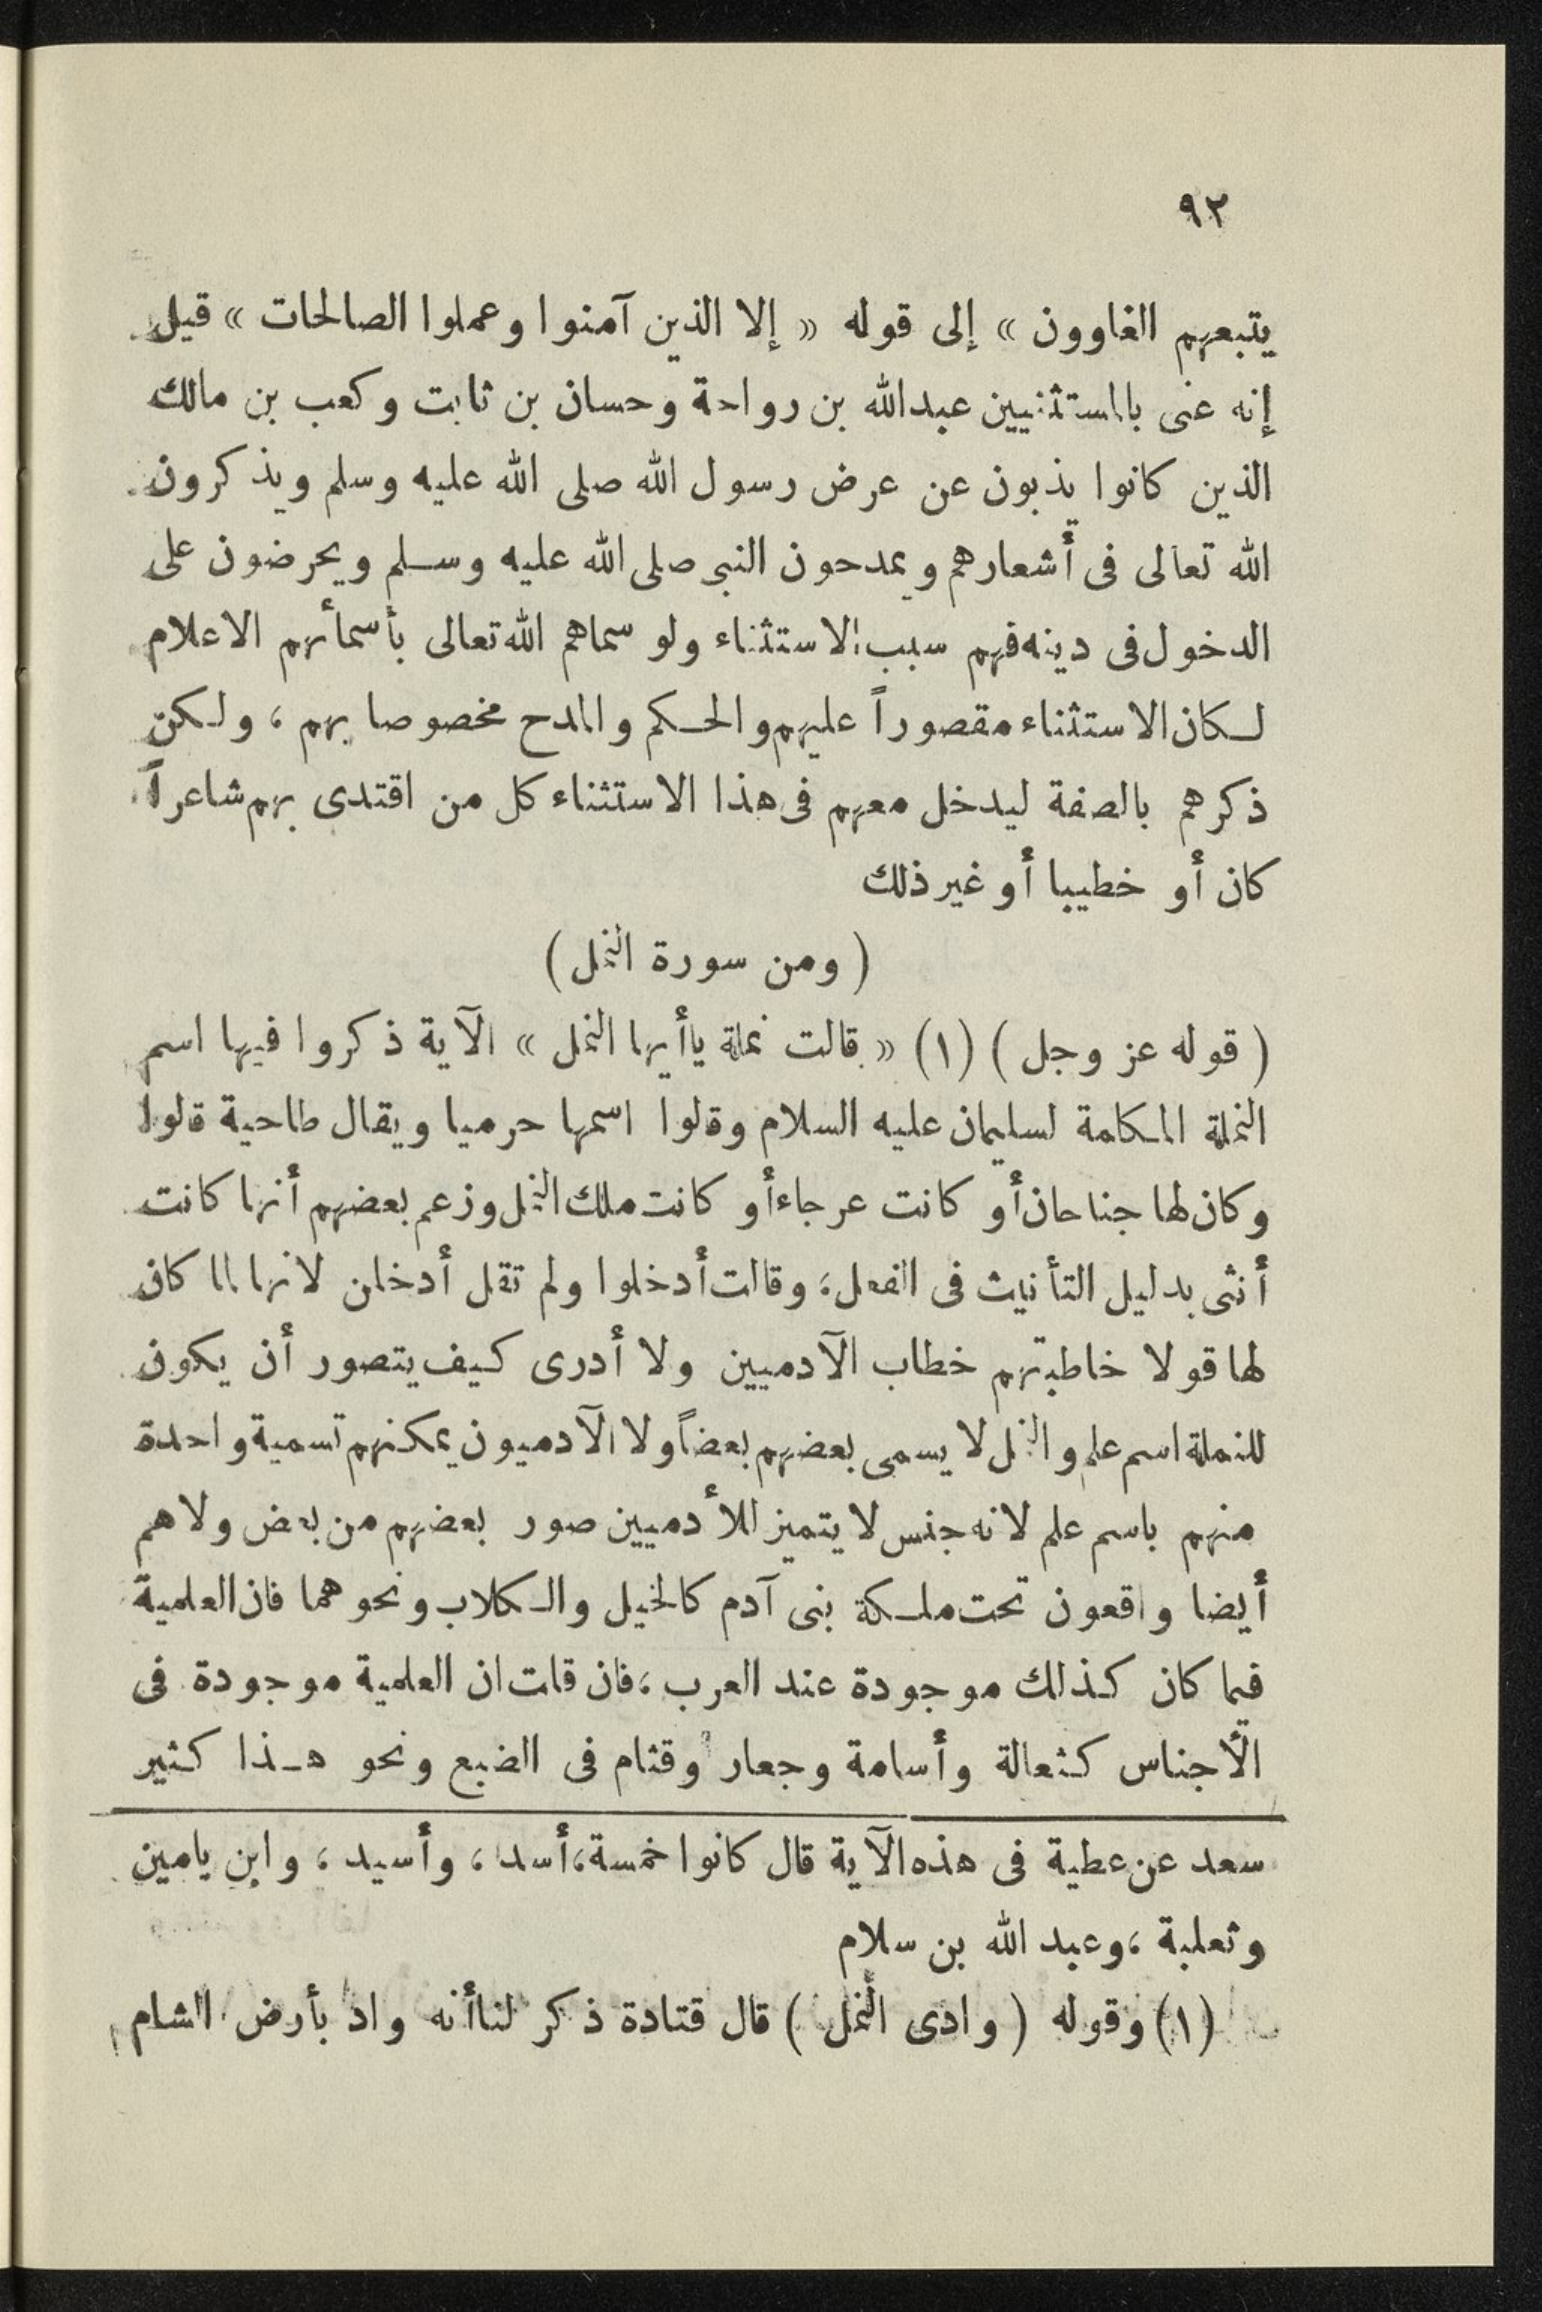 ٩٢
يتبعهم الغاوون » إلى قوله « إلا الذين آمنوا وعملوا الصالحات » قيل
إنه عنى بالمستثنيين عبدالله بن رواحة وحسان بن ثابت وكعب بن مالك
الذين كانوا يذبون عن عرض رسول الله صلى الله عليه وسلم ويذكرون
الله تعالى فى أشعارهم ويمدحون النبى صلى الله عليه وسلم ويحرضون على
الدخول فى دينه فهم سبب الاستثناء ولو سماهم الله تعالى بأسمائهم الاعلام
لكان الاستثناء مقصوراً عليهم والحكم والمدح مخصوصا بهم ، ولكن
ذكرهم بالصفة ليدخل معهم فى هذا الاستثناء كل من اقتدى بهم شاعراً
كان أو خطيبا أو غير ذلك
( ومن سورة النمل )
( قوله عز وجل ) (١) « قالت نملة ياأيها النمل » الآية ذكروا فيها اسم
النملة المكلمة لسليمان عليه السلام وقالوا اسمها حرميا ويقال طاحية قالوا
وكان لها جناحان أو كانت عرجاء أو كانت ملك النمل وزعم بعضهم أنها كانت
أنثى بدليل التأنيث فى الفعل ، وقالت أدخلوا ولم تقل أدخلن لانها لما كان
لها قولا خاطبتهم خطاب الآدميين ولا أدرى كيف يتصور أن يكون
للنملة اسم علم والنمل لا يسمى بعضهم بعضاً ولا الآدميون يمكنهم تسمية واحدة
منهم باسم علم لانه جنس لا يتميز للأدميين صور بعضهم من بعض ولا هم
أيضا واقعون تحت ملكة بنى آدم كالخيل والكلاب ونحوهما فان العلمية
فيما كان كذلك موجودة عند العرب ، فان قلت ان العلمية موجودة فى
الأجناس كثعالة وأسامة وجعار وقثام فى الضبع ونحو هذا كثير
سعد عن عطية فى هذه الآية قال كانوا خمسة ، أسد ، وأسيد ، وابن يامين
وثعلبة ، وعبد الله بن سلام
(١) وقوله ( وادى النمل ) قال قتادة ذكر لنا أنه واد بأرض الشام